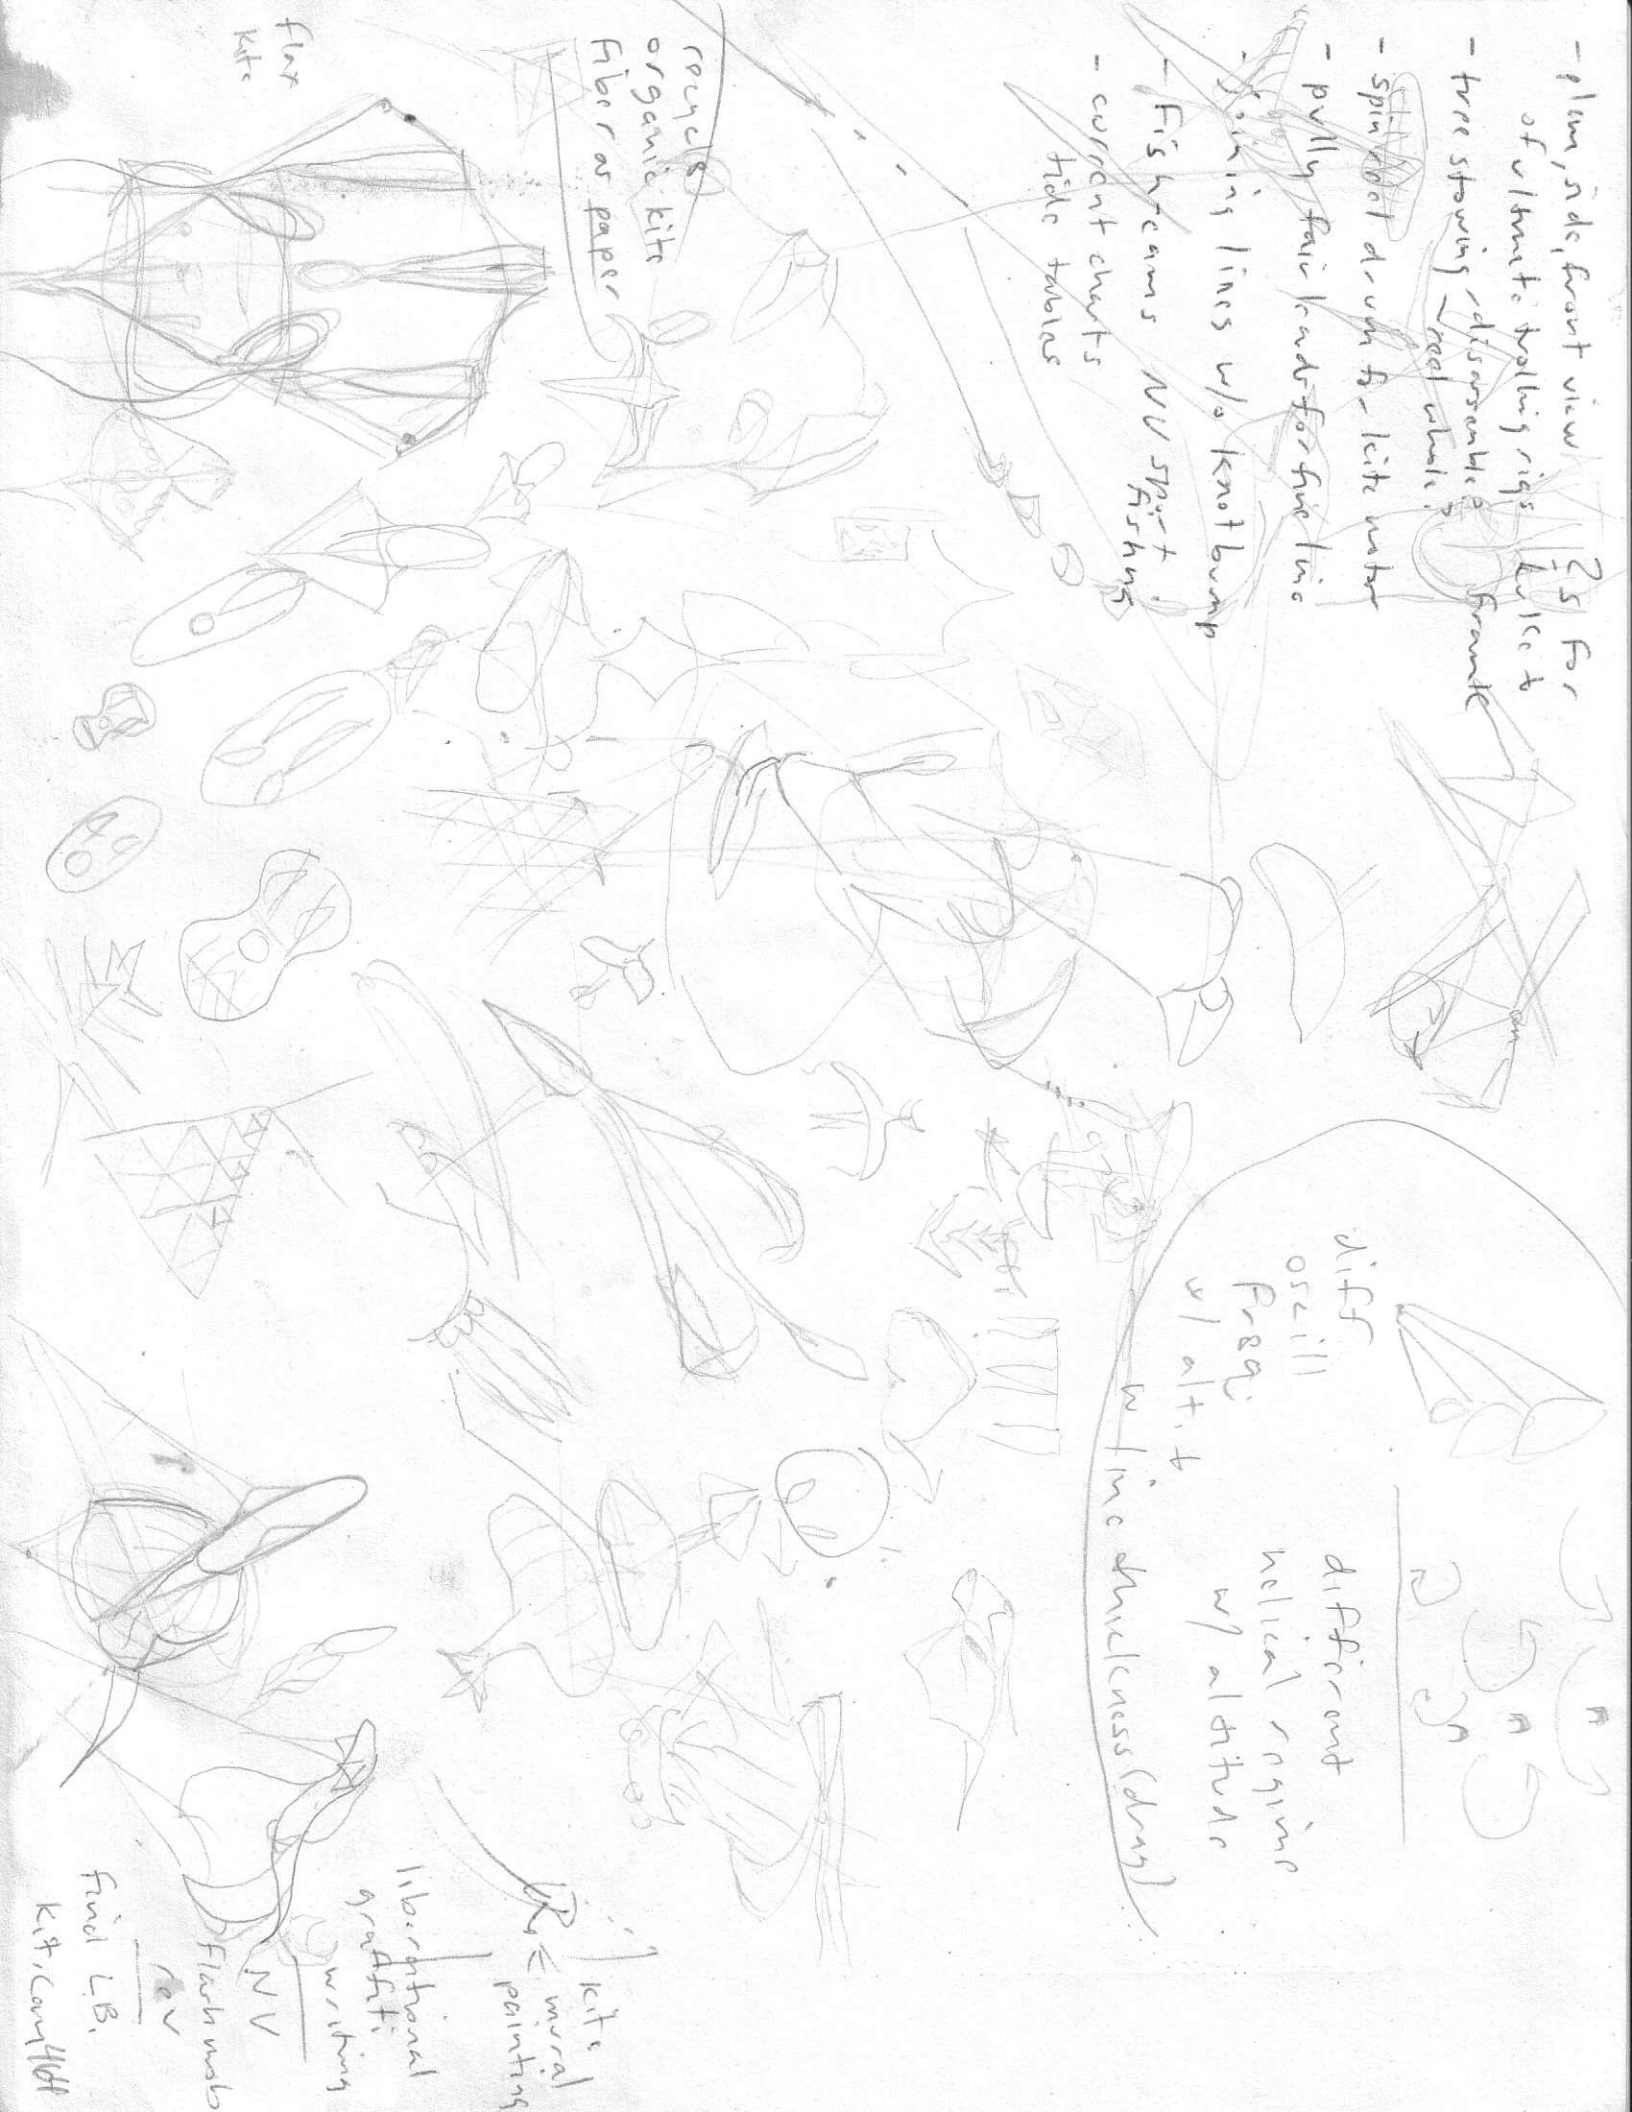 - plan, side, front view ?s for
of ultimate trolling rigs hulled to
- tree stowing, disassemble frame
reel whole?
- spin reel drum for kite motor
- pully fairleads for fine line
- joining lines w/o knot bump
- Fish-cams NV sport
fishing
- current charts
tide tables
recycle
organic kite
fiber as paper
flax
kite
diff
oscill
freq.
w/ alt.
w/ line thickness (drag)
different
helical regime
w/ altitude
kite
mural
painting
liberational
graffiti
writing
NV
flashmob
rev
find L.B.